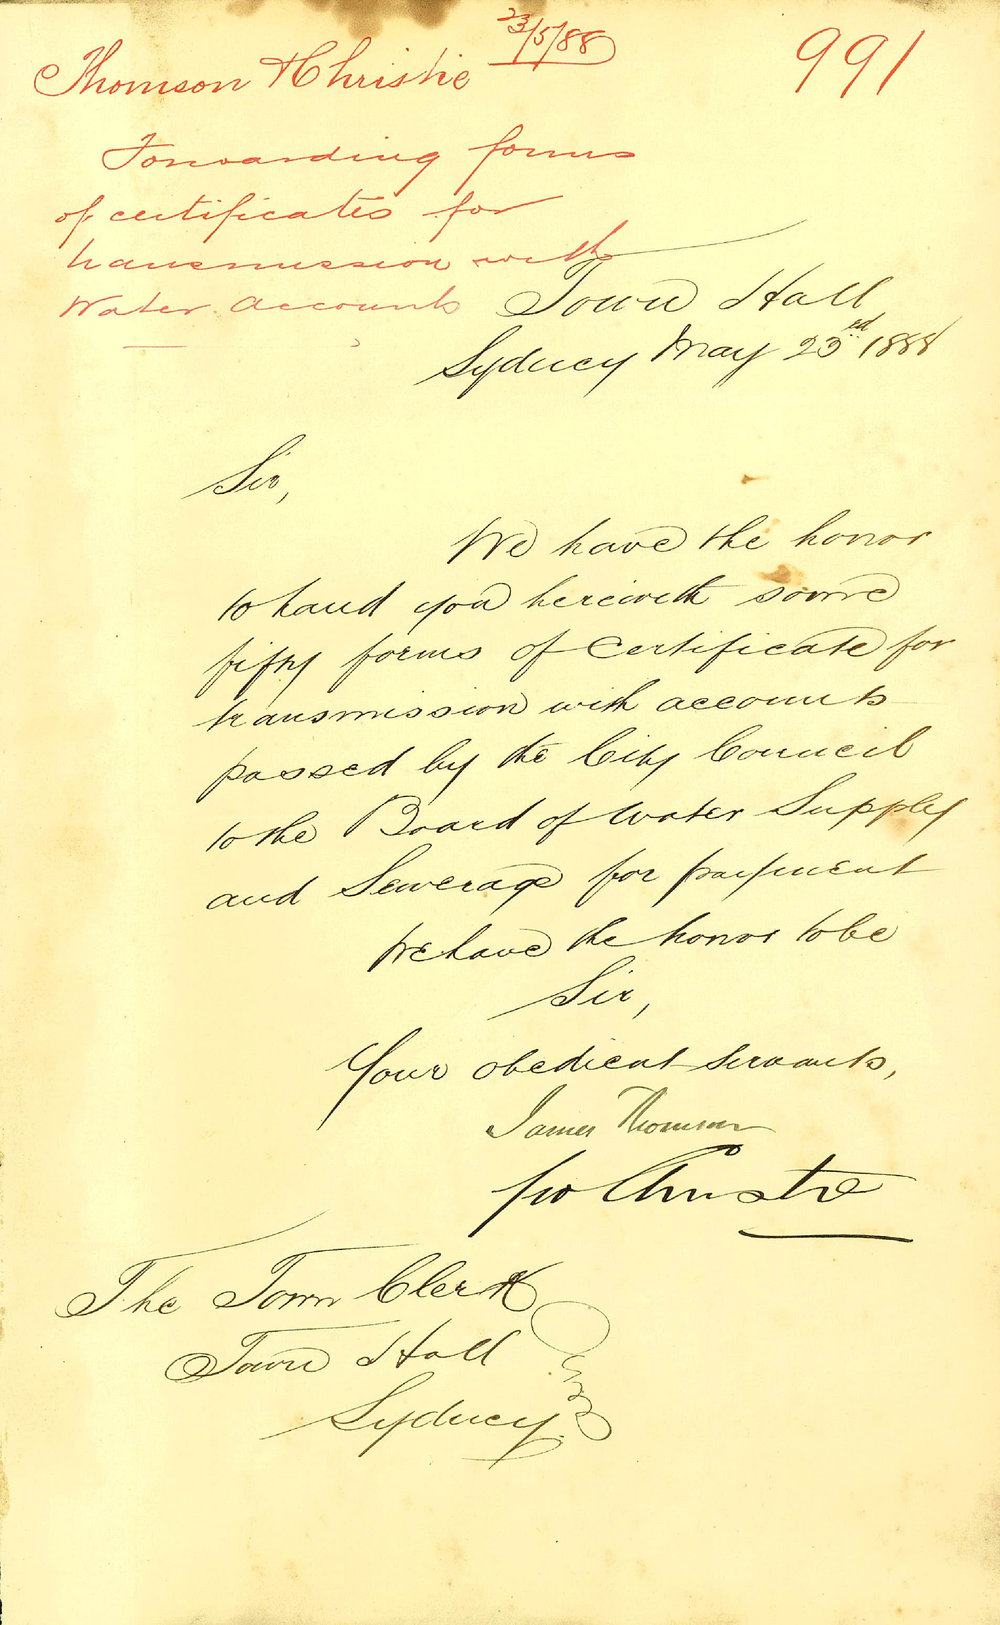 23/5/88
Thomson & Christie
991
Forwarding forms
of certificates for
transmission with
Water accounts
Town Hall
Sydney May 23rd 1888
Sir,
We have the honor
to hand you herewith some
fifty forms of Certificate for
transmission with accounts
passed by the City Council
to the Board of Water Supply
and Sewerage for payment
We have the honor to be
Sir,
Your obedient servants,
James Thomson
Christie
The Town Clerk
Town Hall
Sydney.